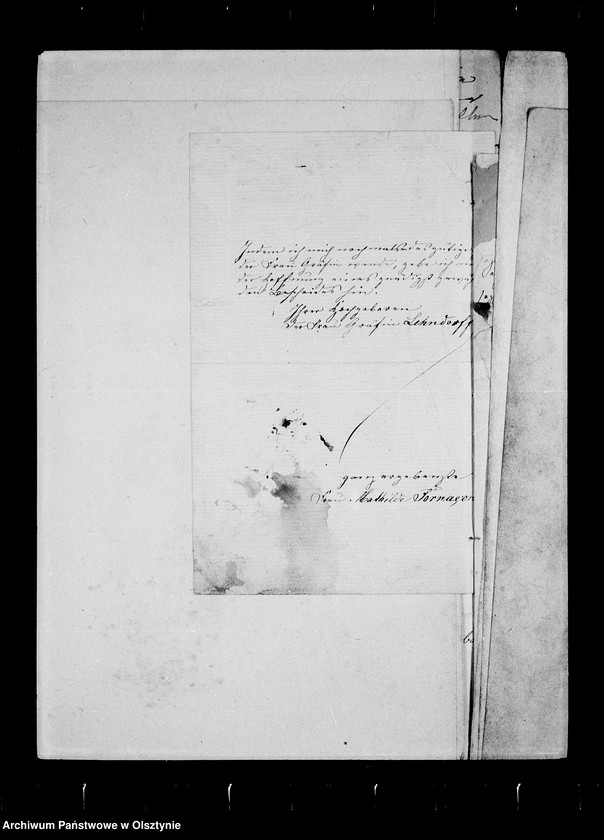 Indem ich mich nochmals
der Frau Gräfin wende, gebe ich
der Hoffnung eines gnädigst
den Bescheides hin.
Ihrer Hochgeboren
der Frau Gräfin Lehndorff
ganz ergebenste
Frau Mathilde Tornaçon
Archiwum Państwowe w Olsztynie